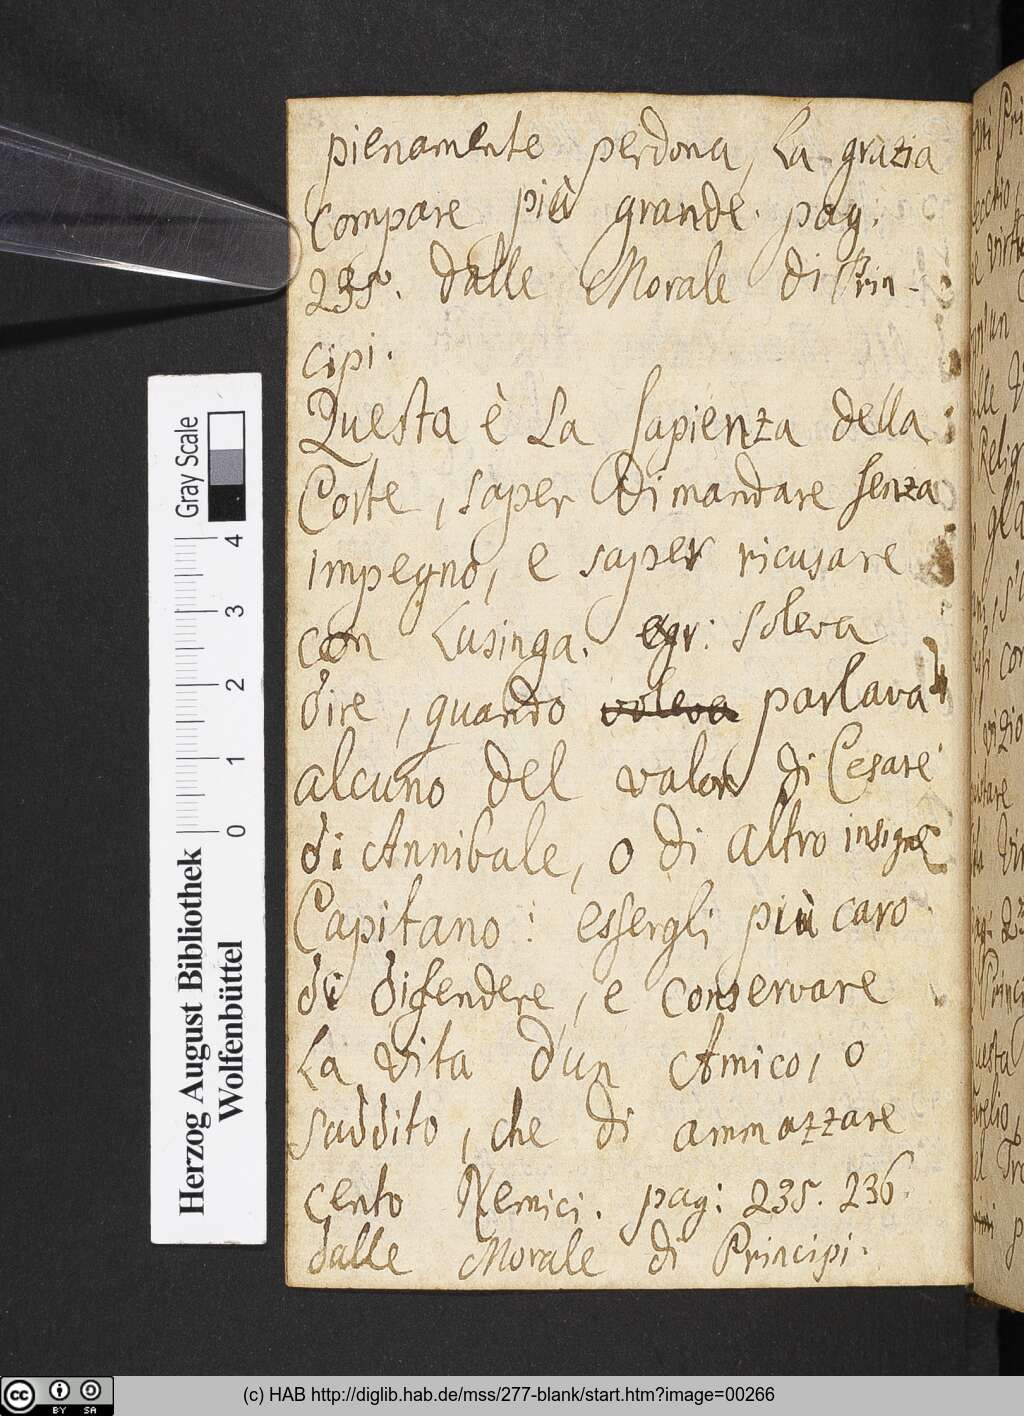 pienamente perdona, La grazia
compare più grande. pag.
235. dalle Morale di Prin-
cipi.
Questa è La sapienza della
Corte, saper dimandare senza
impegno, e saper ricusare
con Lusinga. egr: soleva
dire, quando soleva parlava
alcuno del valor di Cesare
di Annibale, o di altro insigne
Capitano: essergli più caro
di difendere, e conservare
La vita d'un Amico, o
suddito, che di ammazzare
cento Nemici. pag: 235. 236
dalle Morale di Principi.
Gray Scale
4
3
2
1
0
Herzog August Bibliothek
Wolfenbüttel
cc BY SA
(c) HAB http://diglib.hab.de/mss/277-blank/start.htm?image=00266